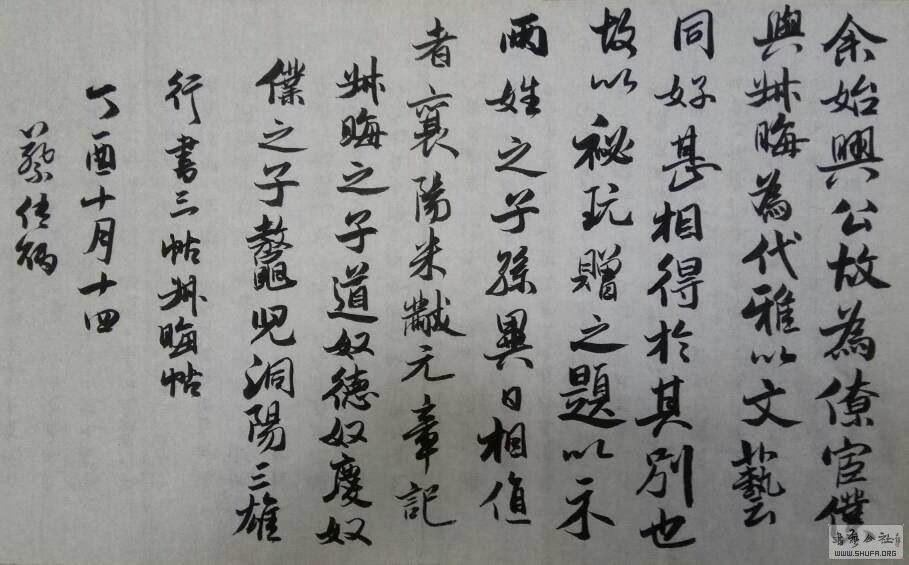 余始興公故為僚宦僕
與叔晦為代雅以文藝
同好甚相得於其別也
故以秘玩贈之題以示
兩姓之子孫異日相值
者襄陽米黻元章記
叔晦之子道奴德奴慶奴
僕之子鼇兒洞陽三雄
行書三帖叔晦帖
丁酉十月十四
蔡佳炳
WWW.SHUFA.ORG